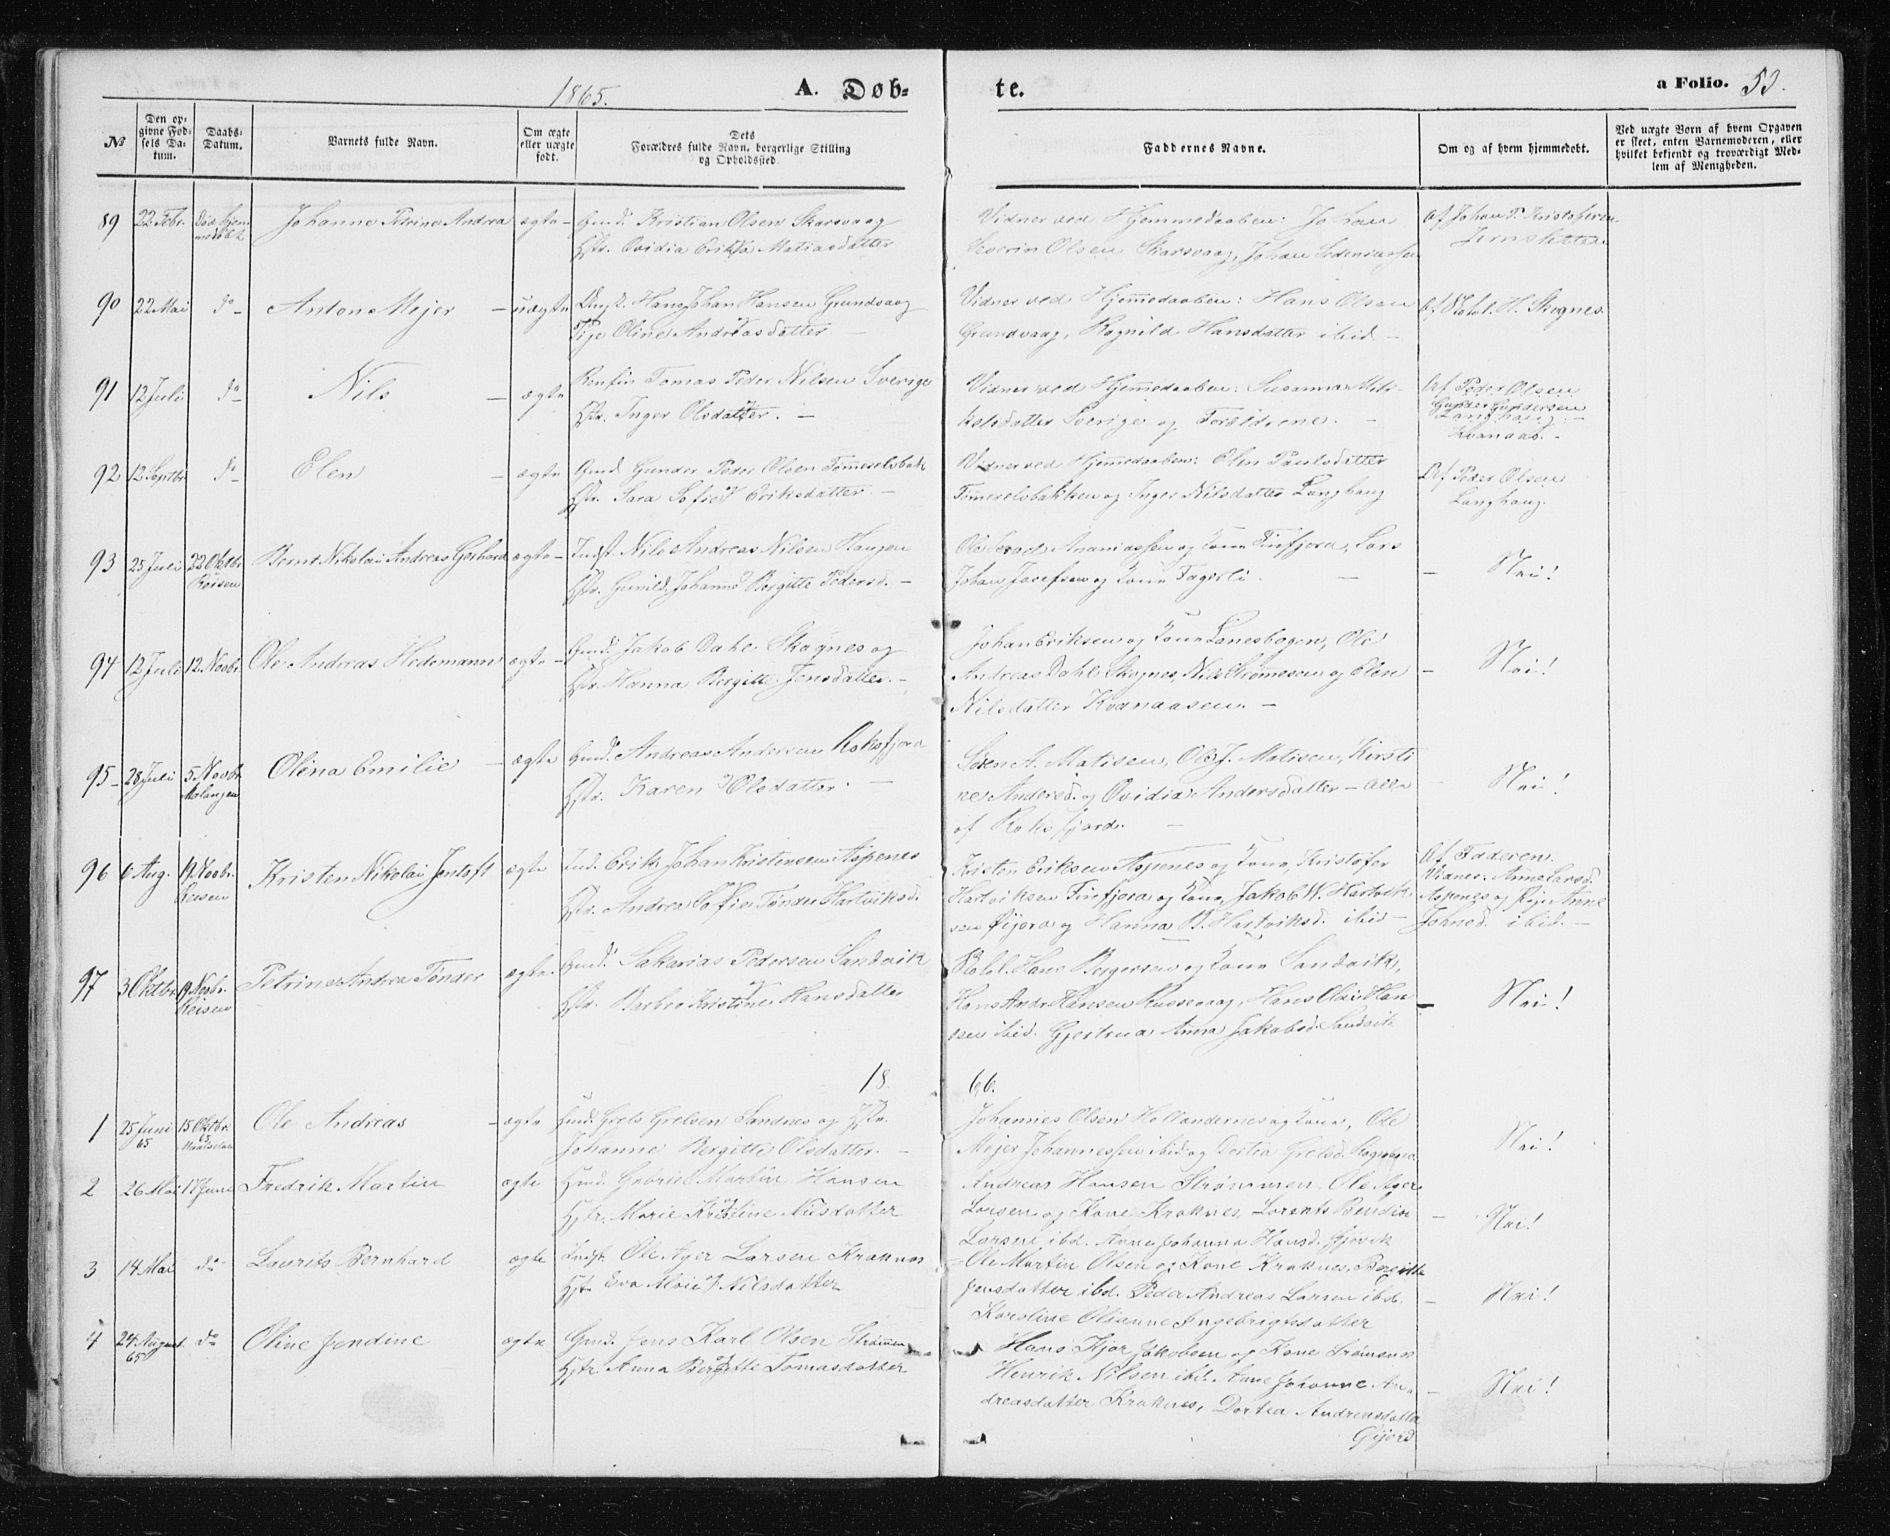 1865. A. Døb- te. a Folio. 53.
№
Den op-
givne Fød-
sels Da-
tum.
Daabs-
Datum.
Barnets fulde Navn.
Om ægte
eller uægte
født.
Dets
Forældres fulde Navn, borgerlige Stilling
og Opholdssted.
Faddernes Navne.
Om og af hvem hjemmedøbt.
Ved uægte Børn af hvem Opgaven
er skeet, enten Barnemoderen, eller
hvilket bekjendt og troværdigt Med-
lem af Menigheden.
89 22 Febr. Johanne Petrine Andrea ægte – Gmd. Kristian Olsen Skarsvaag
Hstr. Ovidia Erikka Matiasdatter
Vidner ved Hjemmedaaben: Johan
Severin Olsen Skarsvaag, Johan
Af Johan P. Kristofersen
90 22 Mai do – Anton Mejer – uægte Ungk. Hans Johan Hansen Grundvaag
Pige Oline Andreasdatter
Vidner ved Hjemmedaaben: Hans Olsen
Grundvaag, Ragnild Hansdatter ibid –
Af H. Skognes.
91 12 Juli do – Nils – ægte Renfin Tomas Peder Nilsen Sverige
Hstr. Inger Olsdatter. –
Vidner ved Hjemmedaaben: Susanna Mik-
kelsdatter Sverige og Forældrene. –
Af Peder Olsen
Gunder Gundersen
Langhaug. –
Kvanaas. –
92 12 Septbr do – Elen – ægte Gmd. Gunder Peder Olsen Tømmeselvbak
Hstr. Sara Sofie Eriksdatter. –
Vidner ved Hjemmedaaben: Elen Paulsdatter
Tømmerelvbakken og Inger Nilsdatter Langhaug
Af Peder Olsen
Langhaug.
93 25 Juli 22 Oktbr.
Reisen
Bernt Nikolai Andreas Gerhard ægte – Indst. Nils Andreas Nilsen Haugen
Hstr. Gunild Johanna Bergitte Pedersd. –
Ole Israel Ananiassen og Kone Finfjora, Lars
Johan Josefsen og Kone Fagerli. –
– Nei!
94 12 Juli 12 Novbr. Ole Andreas Hedemann ægte – Gmd. Jakob Dahl Skognes og
Hstr. Hanna Bergitte Jensdatter. –
Johan Eriksen og Kone Lanesbogen, Ole
Andreas Dahl Skognes, Nils Strømesen og Elen
Nilsdatter Kvanaasen. –
– Nei!
95 – 28 Juli 5 Novbr.
Malangen
Olena Emilie – ægte Gmd. Andreas Andersen Roksfjora
Hstr. Karen Olsdatter. –
Søren A. Matisen, Ole J. Matisen, Kirsti-
ne Andersd. og Ovidia Andersdatter – alle
af Roksfjord. –
– Nei!
96 6 Aug. 19 Novbr.
Reisen
Kristen Nikolai Jentoft ægte Ind. Erik Johan Kristensen Aspenes
Hstr. Andrea Sofie Tønder Hartviksd.
Kristen Eriksen Aspenes og Kone, Kristofer
Hartviksen Finfjora og Kone, Jakob W. Hartvik-
sen Øijora og Hanna B. Hartviksd. ibid –
Af Faderen.
Vidnes: Anne Larsd.
Aspenes og Pige Anne
Johnsd. ibid. –
97 3 Oktbr. 19 Novbr.
Reisen
Petrine Andrea Tønder ægte. Gmd. Sakarias Pedersen Sandvik
Hstr. Barbro Kristine Hansdatter
Hans Bergersen og Kone Sandvik,
Hans Andr. Hansen Russevaag, Hans Olai Han-
sen ibid. Gjertrua Anna Jakobsd. Sandvik
– Nei!
18 66.
1 25 Juni
65
15 Oktbr.
65
Ole Andreas – ægte Gmd. Grels Grelsen Sandnes og Hstr.
Johanne Bergitte Olsdatter. –
Johannes Olsen Hollendernes og Kone, Ole
Mejer Johannessen ibid og Dortia Grelsd.
Nei!
2 26 Mai 17 Juni Fredrik Martin ægte Gmd. Gabriel Martin Hansen
Hstr. Marie Kristine Nilsdatter
Andreas Hansen Strømmen. Ole Ager
Larsen og Kone Kraknes, Lorents Bendix
Larsen ibd. Anne Johanna Hansd. Gjøvik
– Nei!
3 14 Mai do Laurits Bernhard ægte Indst. Ole Ager Larsen Kraknes
Hstr. Eva Marie Nilsdatter
Ole Martin Olsen og Kone Kraknes, Beregitte
Jensdatter ibd. Peder Andreas Larsen ibd.
Karoline Olianne Ingebrigtsdatter
– Nei!
4 24 August
65
do Oline Jendine ægte Gmd. Jens Karl Olsen Strømmen
Hstr. Anna Bergitte Tomasdatter
Hans Kjer Jakobsen og Kone Strømmen
Henrik Nilsen ibd. Anne Johanne An-
dreasdatter Kraknes, Dortea Andreasdatter
– Nei!